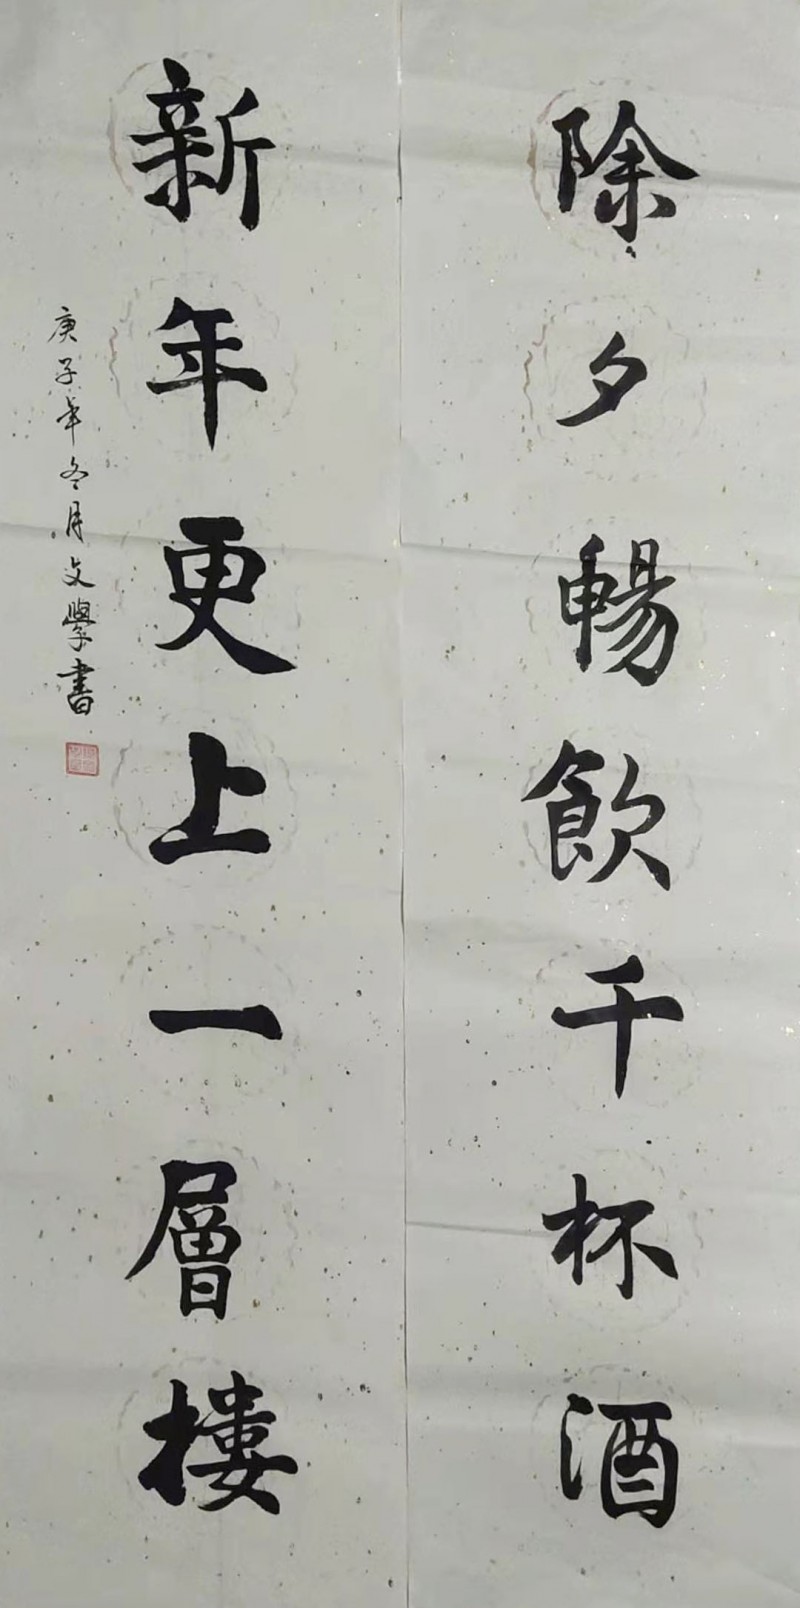 除夕暢飲千杯酒
新年更上一層樓
庚子年冬月文學書